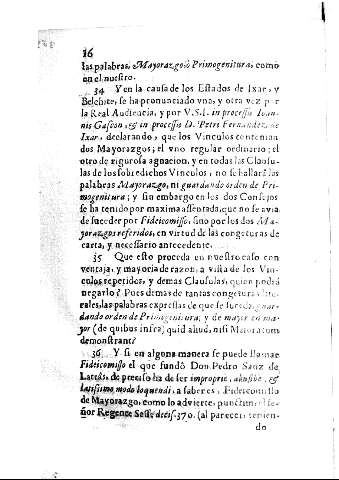 16
las palabras, Mayorazgo, ò Primogenitura, como
en el nuestro.
34 Y en la causa de los Estados de Ixar, y
Belchite, se ha pronunciado vno, y otra vez por
la Real Audiencia, y por V.S.I. in processu Ioan-
nis Gascon, & in processu D. Petri Fernandez de
Ixar, declarando, que los Vinculos contenian
dos Mayorazgos; el vno regular ordinario; el
otro de rigurosa agnacion, y en todas las Clausu-
las de los sobredichos Vinculos, no se hallarà las
palabras Mayorazgo, ni guardando orden de Pri-
mogenitura; y sin embargo en los dos Consejos
se ha tenido por maxima assentada, que no se avia
de suceder por Fideicomisso, sino por los dos Ma-
yorazgos referidos, en virtud de las congeturas de
carta, y necessario antecedente.
35 Que esto proceda en nuestro caso con
ventaja, y mayoria de razon, a vista de los Vin-
culos repetidos, y demas Clausulas, quien podrà
negarlo? Pues demas de tantas congeturas lite-
rales, las palabras expressas de que se suceda, guar-
dando orden de Primogenitura; y de mayor en ma-
yor (de quibus infra) quid aliud, nisi Maioratum
demonstrant?
36 Y si en alguna manera se puede llamar
Fideicomisso el que fundò Don Pedro Sanz de
Latràs, de preciso ha de ser improprie, abusibe, &
latissimo modo loquendi, a saber es, Fideicomisso
de Mayorazgo, como lo advierte, punctim, el se-
ñor Regente Sesse decis. 370. (al parecer, tenien-
do